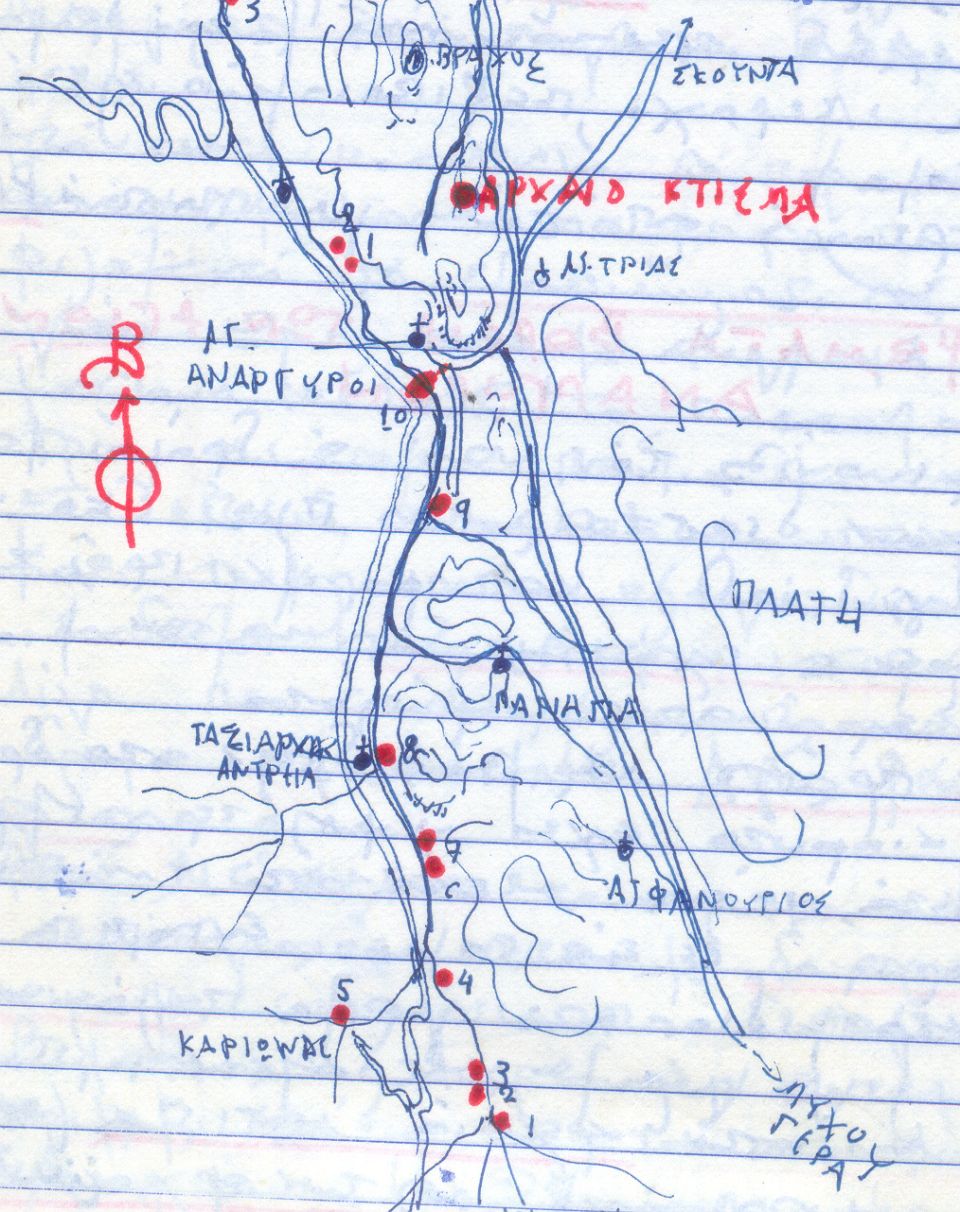 3
ΒΡΑΧΟΣ
ΣΚΟΥΝΤΑ
ΑΡΧΑΙΟ ΚΤΙΣΜΑ
2
1
ΑΓ.
ΑΝΑΡΓΥΡΟΙ
10
Β
9
ΠΛΑΤΥ
ΠΑΝΑΓΙΑ
ΤΑΞΙΑΡΧΗ
8
7
6
ΑΓ ΦΑΝΟΥΡΙΟΣ
4
5
ΚΑΡΙΩΝΑΣ
3
2
1